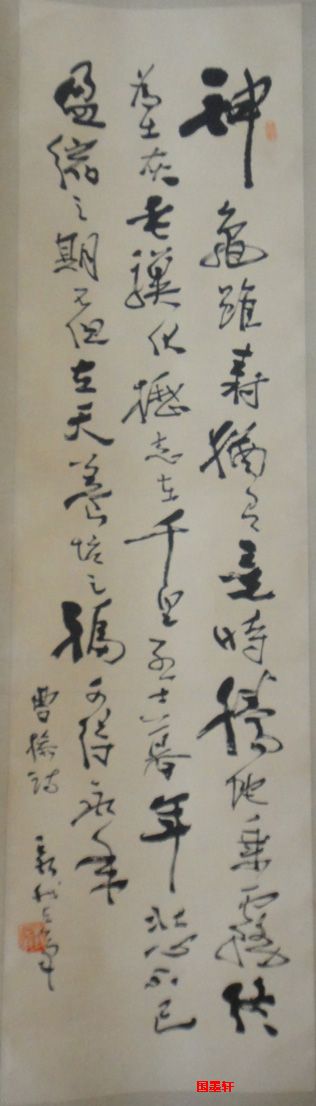 神龜雖壽猶有竟時騰虵乘霧終
為土灰老驥伏櫪志在千里烈士暮年壯心不已
盈縮之期不但在天養怡之福可得永年
曹操詩
国墨轩